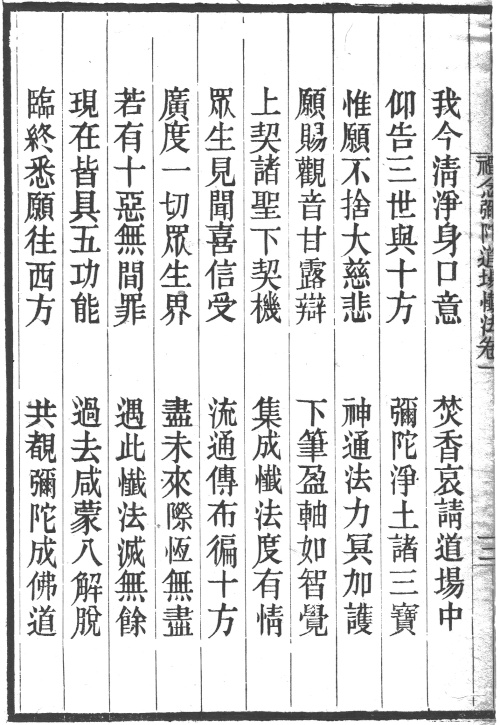 禮念彌陀道場懺法卷一
我今清淨身口意　焚香哀請道場中
仰告三世與十方　彌陀淨土諸三寶
惟願不捨大慈悲　神通法力冥加護
願賜觀音甘露辯　下筆盈軸如智覺
上契諸聖下契機　集成懺法度有情
眾生見聞喜信受　流通傳布徧十方
廣度一切眾生界　盡未來際恆無盡
若有十惡無間罪　遇此懺法滅無餘
現在皆具五功能　過去咸蒙八解脫
臨終悉願往西方　共覩彌陀成佛道